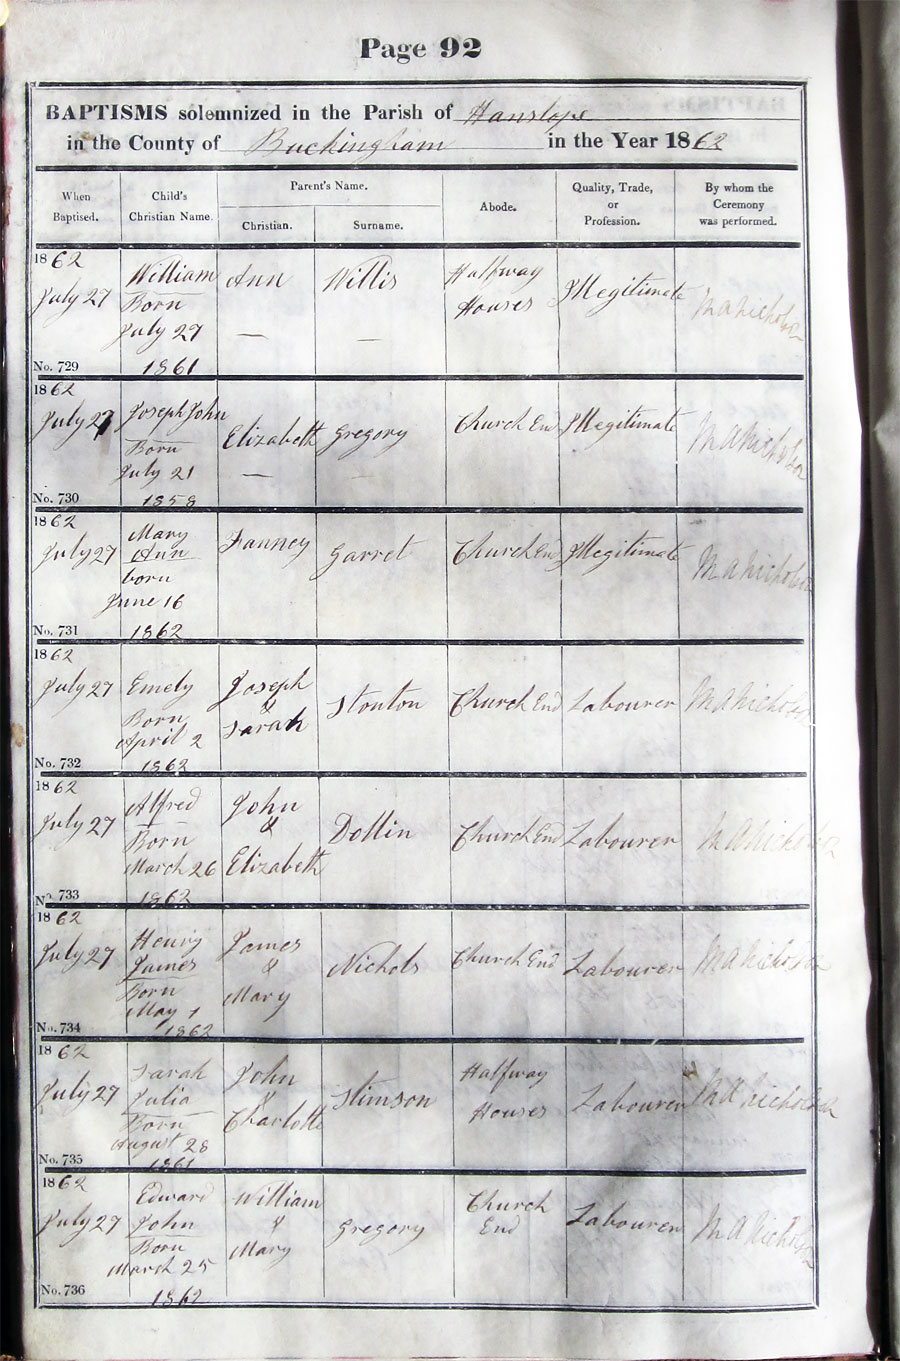 Page 92
BAPTISMS solemnized in the Parish of Hanslope
in the County of Buckingham in the Year 1862
When Baptised.
Child's Christian Name.
Parent's Name.
Christian.
Surname.
Abode.
Quality, Trade, or Profession.
By whom the Ceremony was performed.
1862
July 27
No. 729
William
Born
July 27
1861
Ann
—
Willis
—
Halfway
Houses
Illegitimate
M A Nicholson
1862
July 27
No. 730
Joseph John
Born
July 21
1858
Elizabeth
—
Gregory
Church End
Illegitimate
M A Nicholson
1862
July 27
No. 731
Mary
Ann
born
June 16
1862
Fanney
Garret
Church End
Illegitimate
M A Nicholson
1862
July 27
No. 732
Emely
Born
April 2
1862
Joseph
&
Sarah
Stonton
Church End
Labourer
M A Nicholson
1862
July 27
No. 733
Alfred
Born
March 26
1862
John
&
Elizabeth
Dollin
Church End
Labourer
M A Nicholson
1862
July 27
No. 734
Henry
James
Born
May 1
1862
James
&
Mary
Nichols
Church End
Labourer
M A Nicholson
1862
July 27
No. 735
Sarah
Julia
Born
August 28
1861
John
&
Charlotte
Stimson
Halfway
Houses
Labourer
M A Nicholson
1862
July 27
No. 736
Edward
John
Born
March 25
1862
William
&
Mary
Gregory
Church
End
Labourer
M A Nicholson